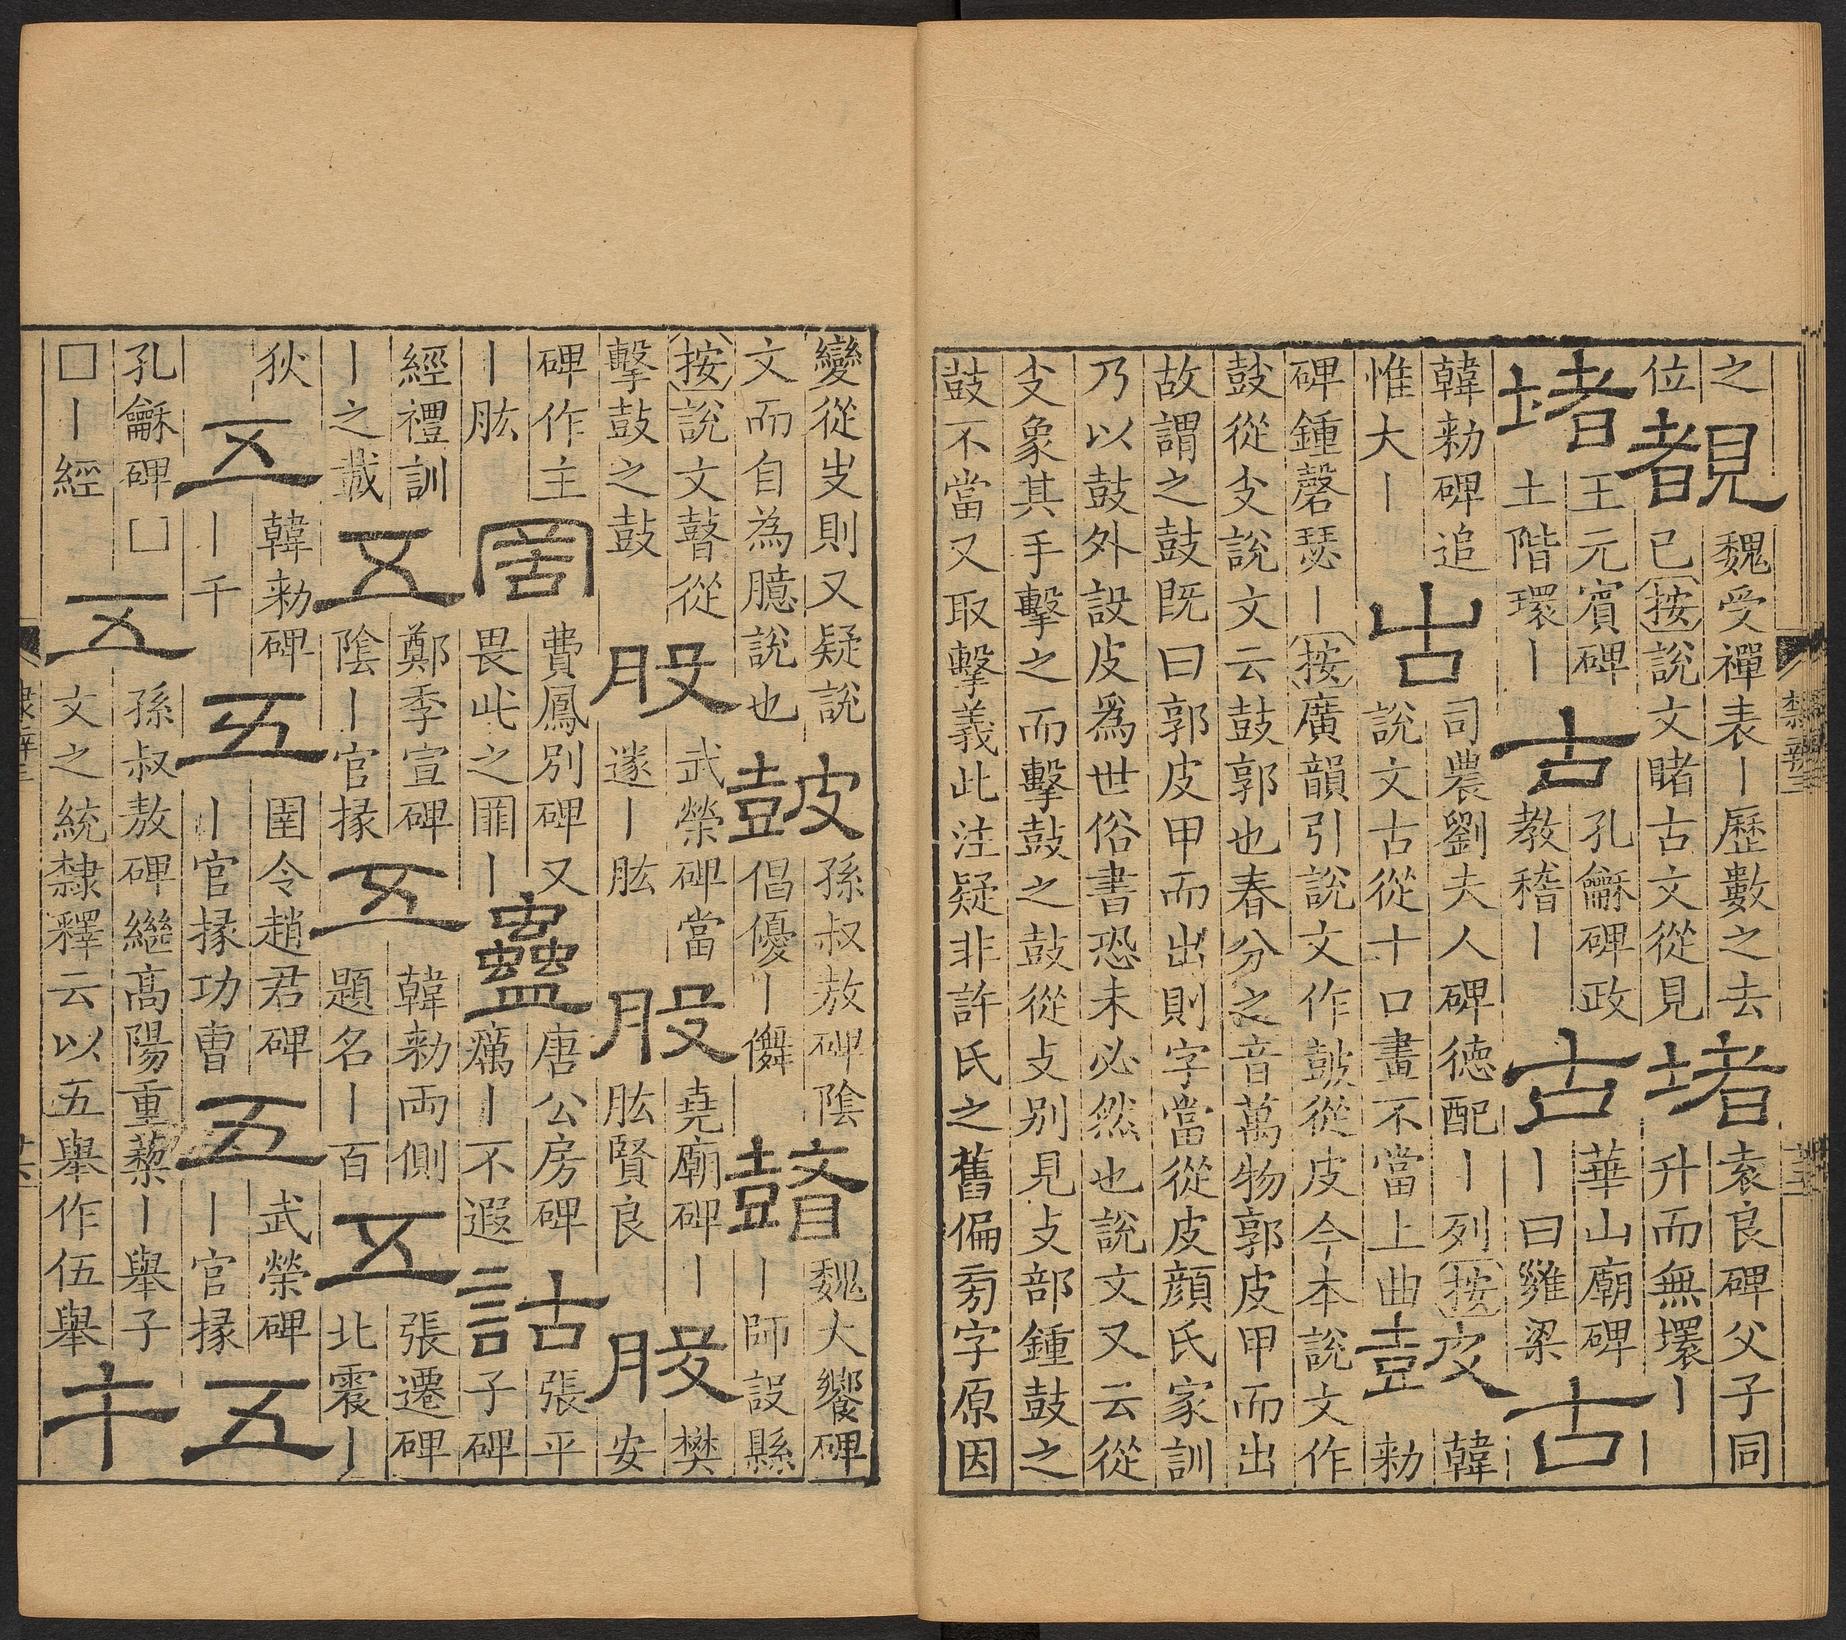 之
位
覩
魏受禪表丨歷數之去
已按說文睹古文從見
堵
袁良碑父子同
升而無壞丨丨
堵
王元賓碑
土階環丨
古
孔龢碑政
教稽丨
古
華山廟碑
丨曰雍梁
古
韓勑碑追
惟大丨
古
司農劉夫人碑德配丨列按
說文古從十口畫不當上曲
鼓
韓
勑
碑鍾磬瑟丨按廣韻引說文作皷從皮今本說文作
鼓從攴說文云鼓郭也春分之音萬物郭皮甲而出
故謂之鼓既曰郭皮甲而出則字當從皮顏氏家訓
乃以鼓外設皮爲世俗書恐未必然也說文又云從
支象其手擊之而擊鼓之鼓從攴別見攴部鍾鼓之
鼓不當又取擊義此注疑非許氏之舊偏旁字原因
變從攴則又疑說
文而自為臆說也
皷
孫叔敖碑陰
倡優丨儛
瞽
魏大饗碑
丨師設縣
按說文瞽從
擊鼓之鼓
股
武榮碑當
遂丨肱
股
堯廟碑丨
肱賢良
股
樊
安
碑作主
丨肱
罟
費鳳別碑又
畏此之罪丨
蠱
唐公房碑
癘丨不遐
詁
張平
子碑
經禮訓
丨之蕆
五
鄭季宣碑
陰丨官掾
五
韓勑兩側
題名丨百
五
張遷碑
北震丨
狄
五
韓勑碑
丨千
五
圉令趙君碑
丨官掾功曹
五
武榮碑
丨官掾
五
孔龢碑□
□丨經
五
孫叔敖碑繼高陽重藜丨舉子
文之統隸釋云以五舉作伍舉
午